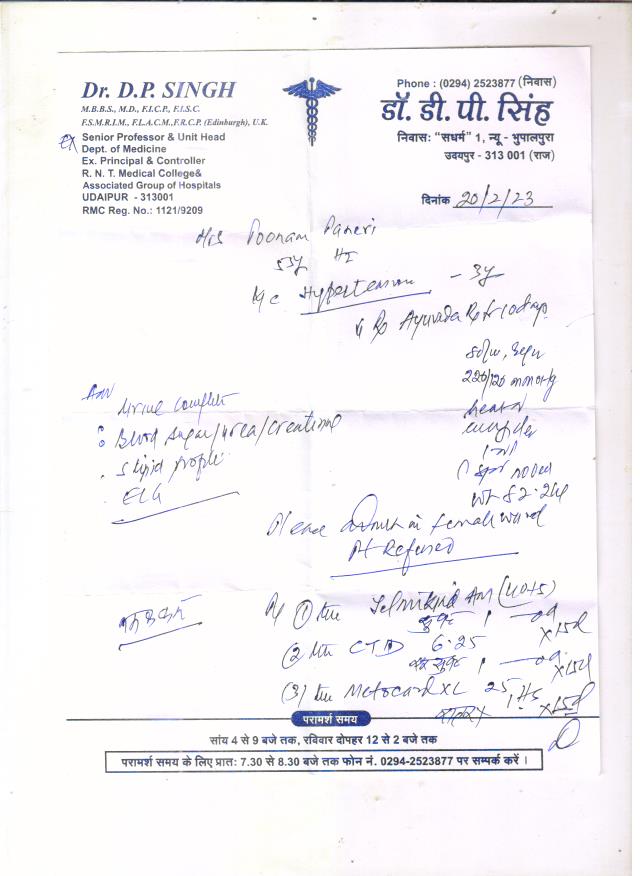 Dr. D.P. SINGH
M.B.B.S., M.D., F.I.C.P., F.I.S.C.
F.S.M.R.I.M., F.I.A.C.M.,F.R.C.P. (Edinburgh), U.K.
Ex Senior Professor & Unit Head
Dept. of Medicine
Ex. Principal & Controller
R. N. T. Medical College&
Associated Group of Hospitals
UDAIPUR - 313001
RMC Reg. No.: 1121/9209
Phone : (0294) 2523877 (निवास)
डॉ. डी. पी. सिंह
निवासः "सधर्म" 1, न्यू - भुपालपुरा
उदयपुर - 313 001 (राज)
दिनांक 20/2/23
Poonam Paneri
53y
Hypertension - 3y
Ayurveda
220/120 mmHg
Heart
Wt 82.2
Adv
Urine Complete
Blood Sugar/Urea/Creatinine
S Lipid profile
ECG
Please admit in female ward
Pt Refused
(1) Telmikind AM (40+5)
x 15d
(2) CTD 6.25
x 15d
(3) Metocard XL 25 1 HS
x 15d
परामर्श समय
सांय 4 से 9 बजे तक, रविवार दोपहर 12 से 2 बजे तक
परामर्श समय के लिए प्रातः 7.30 से 8.30 बजे तक फोन नं. 0294-2523877 पर सम्पर्क करें ।